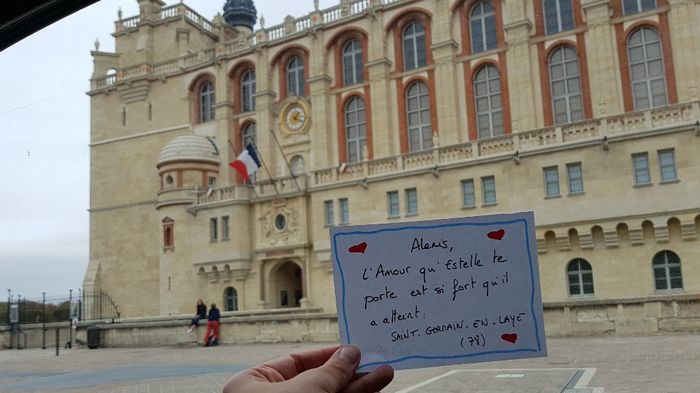 Alexis,
L'Amour qu'Estelle te
porte est si fort qu'il
a atteint :
SAINT-GERMAIN-EN-LAYE
(78)